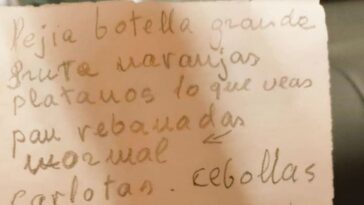 Lejia botella grande
fruta naranjas
platanos lo que veas
pan rebanadas
normal
carlotas. cebollas